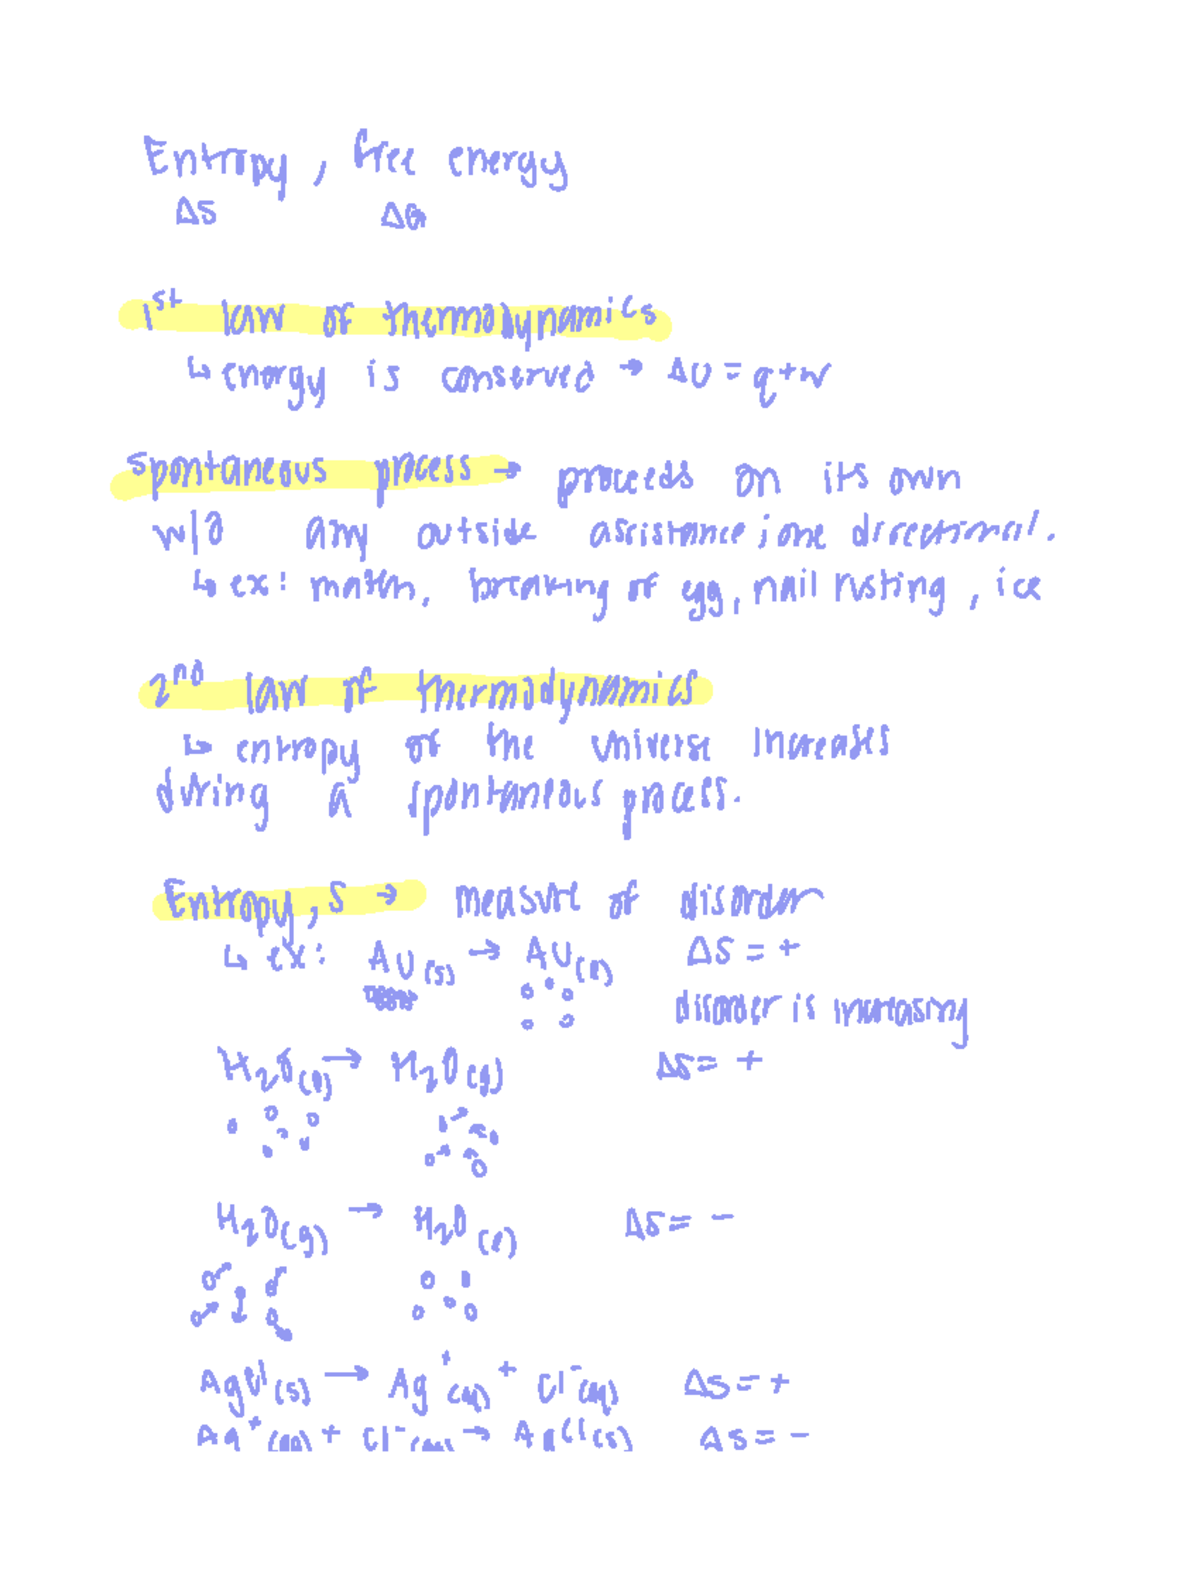 Entropy, free energy
ΔS ΔG
1st law of thermodynamics
↳ energy is conserved → ΔU = q+w
spontaneous process → proceeds on its own
w/o any outside assistance; one directional.
↳ ex: match, breaking of egg, nail rusting, ice
2nd law of thermodynamics
↳ entropy of the universe increases
during a spontaneous process.
Entropy, S → measure of disorder
↳ ex: Au(s) → Au(l) ΔS = +
disorder is increasing
H2O(l) → H2O(g) ΔS = +
H2O(g) → H2O(l) ΔS = -
AgCl(s) → Ag+(aq) + Cl-(aq) ΔS = +
Ag+(aq) + Cl-(aq) → AgCl(s) ΔS = -